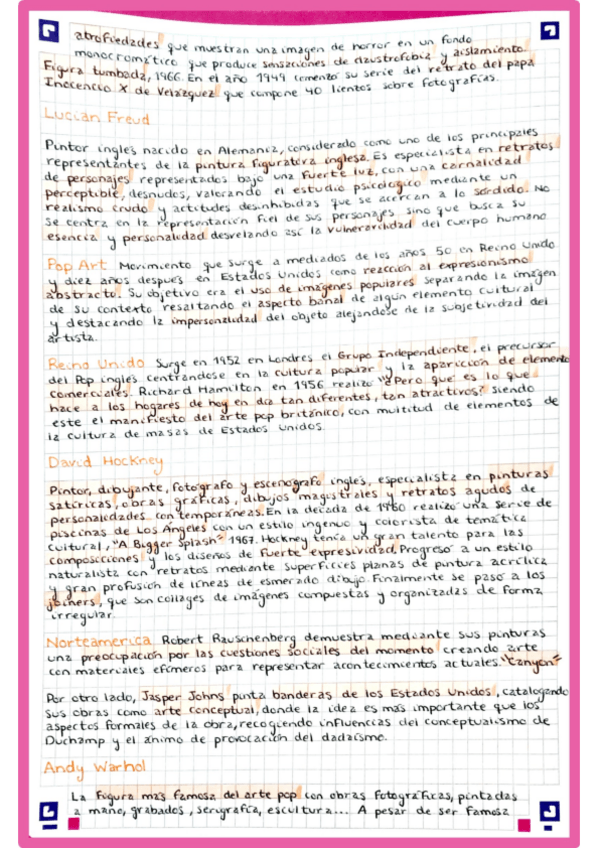 atrofiedades que muestran una imagen de horror en un fondo
monocromático que produce sensaciones de claustrofobia y aislamiento.
Figura tumbada, 1966. En el año 1949 comenzó su serie del retrato del papa
Inocencio X de Velázquez que compone 40 lientos sobre fotografías.
Lucian Freud
Pintor inglés nacido en Alemania, considerado como uno de los principales
representantes de la pintura figurativa inglesa. Es especialista en retratos
de personajes representados bajo una fuerte luz, con una carnalidad
perceptible, desnudos, valorando el estudio psicológico mediante un
realismo crudo y actitudes desinhibidas que se acercan a lo sórdido. No
se centra en la representación fiel de sus personajes sino que busca su
esencia y personalidad desvelando así la vulnerarlidad del cuerpo humano.
Pop Art Movimiento que surge a mediados de los años 50 en Reino Unido
y diez años después en Estados Unidos como reacción al expresionismo
abstracto. Su objetivo era el uso de imágenes populares separando la imagen
de su contexto resaltando el aspecto banal de algún elemento cultural
y destacando la impersonalidad del objeto alejándose de la subjetividad del
artista.
Reino Unido Surge en 1952 en Londres el Grupo Independiente, el precursor
del Pop inglés centrándose en la cultura popular y la aparición de elemento
comerciales. Richard Hamilton en 1956 realizó "¿Pero qué es lo que
hace a los hogares de hoy en día tan diferentes, tan atractivos?" siendo
este el manifiesto del arte pop británico, con multitud de elementos de
la cultura de masas de Estados Unidos.
David Hockney
Pintor, dibujante, fotógrafo y escenógrafo inglés, especialista en pinturas
satíricas, obras gráficas, dibujos magistrales y retratos agudos de
personalidades contemporáneas. En la década de 1960 realizó una serie de
piscinas de Los Ángeles con un estilo ingenuo y colorista de temática
cultural, "A Bigger Splash" 1967. Hockney tenía un gran talento para las
composiciones y los diseños de fuerte expresividad. Progresó a un estilo
naturalista con retratos mediante superficies planas de pintura acrílica
y gran profusión de líneas de esmerado dibujo. Finalmente se pasó a los
joiners, que son collages de imágenes compuestas y organizadas de forma
irregular.
Norteamerica Robert Rauschenberg demuestra mediante sus pinturas
una preocupación por las cuestiones sociales del momento creando arte
con materiales efímeros para representar acontecimientos actuales. "Canyon"
Por otro lado, Jasper Johns pinta banderas de los Estados Unidos, catalogando
sus obras como arte conceptual, donde la idea es más importante que los
aspectos formales de la obra, recogiendo influencias del conceptualismo de
Duchamp y el ánimo de provocación del dadaísmo.
Andy Warhol
La figura más famosa del arte pop con obras fotográficas, pintadas
a mano, grabados, serigrafía, escultura... A pesar de ser famosa